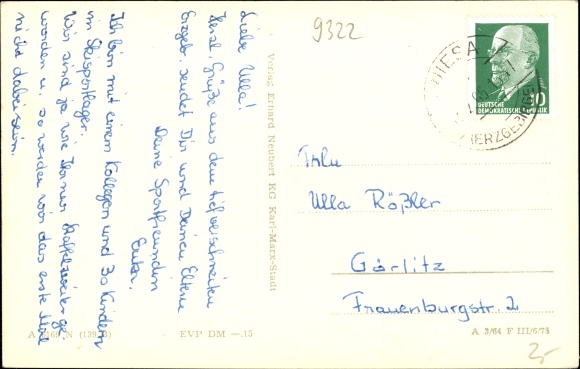 Liebe Ulla!
Herzl. Grüße aus dem tiefverschneiten
Erzgeb. sendet Dir und Deinen Eltern
Deine Sportfreundin
Ich bin mit einem Kollegen und 30 Kindern
im Skisportlager.
Wir sind ja wie Staffelzweiter ge-
worden u. so werden wir das erste Mal
nicht dabei sein.
Verlag Erhard Neubert KG Karl-Marx-Stadt
9322
DEUTSCHE
DEMOKRATISCHE REPUBLIK
10
(ERZGEBIRGE)
Frln
Ulla Rößler
Görlitz
Frauenburgstr. 2
EVP DM —.15
A 3/64 F III/6/78